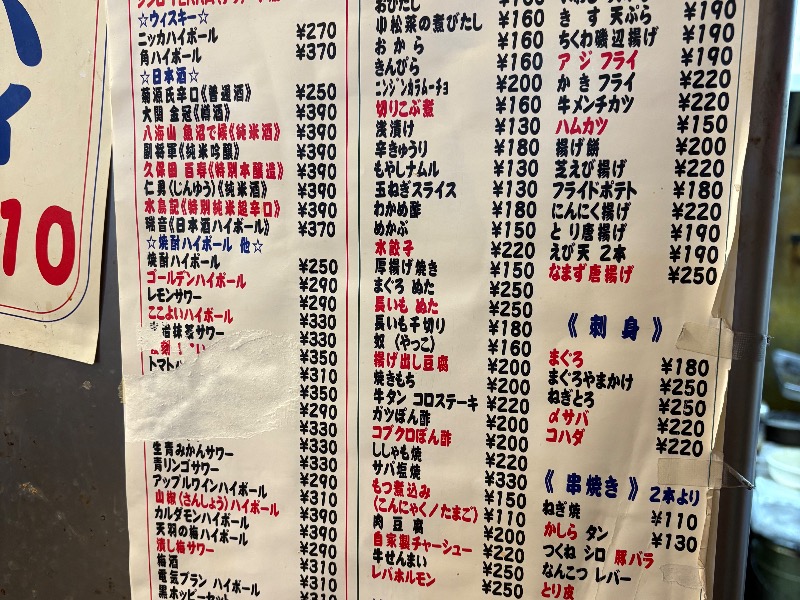 ☆ウィスキー☆
ニッカハイボール ¥270
角ハイボール ¥370
☆日本酒☆
菊源氏辛口《普通酒》 ¥250
大関 金冠《樽酒》 ¥390
八海山 魚沼で候《純米酒》 ¥390
副将軍《純米吟醸》 ¥390
久保田 百寿《特別本醸造》 ¥390
仁勇(じんゆう)《純米酒》 ¥390
水鳥記《特別純米超辛口》 ¥390
瑞音《日本酒ハイボール》 ¥370
☆焼酎ハイボール 他☆
焼酎ハイボール ¥250
ゴールデンハイボール ¥290
レモンサワー ¥290
ここよいハイボール ¥330
抹茶サワー ¥330
¥350
トマト ¥310
¥350
¥290
¥330
生青みかんサワー ¥330
青リンゴサワー ¥330
アップルワインハイボール ¥310
山椒(さんしょう)ハイボール ¥390
カルダモンハイボール ¥390
天羽の梅ハイボール ¥290
潰し梅サワー ¥310
梅酒 ¥310
電気ブラン ハイボール
黒ホッピーセット
おひたし ¥160
小松菜の煮びたし ¥160
おから ¥160
きんぴら ¥160
ニンジンカラムーチョ ¥200
切りこぶ煮 ¥160
浅漬け ¥130
辛きゅうり ¥180
もやしナムル ¥130
玉ねぎスライス ¥130
わかめ酢 ¥180
めかぶ ¥150
水餃子 ¥220
厚揚げ焼き ¥150
まぐろ ぬた ¥250
長いも ぬた ¥250
長いも千切り ¥180
奴(やっこ) ¥160
揚げ出し豆腐 ¥200
焼きもち ¥200
牛タン コロステーキ ¥220
ガツぽん酢 ¥200
コブクロぽん酢 ¥200
ししゃも焼 ¥220
サバ塩焼 ¥330
もつ煮込み ¥150
(こんにゃく/たまご) ¥110
肉豆腐 ¥200
自家製チャーシュー ¥220
牛せんまい ¥250
レバホルモン ¥250
きす 天ぷら ¥190
ちくわ磯辺揚げ ¥190
アジ フライ ¥190
かき フライ ¥220
牛メンチカツ ¥220
ハムカツ ¥150
揚げ餅 ¥200
芝えび揚げ ¥220
フライドポテト ¥180
にんにく揚げ ¥220
とり唐揚げ ¥190
えび天 2本 ¥190
なまず唐揚げ ¥250
《刺身》
まぐろ ¥180
まぐろやまかけ ¥250
ねぎとろ ¥250
〆サバ ¥220
コハダ ¥220
《串焼き》2本より
ねぎ焼 ¥110
かしら タン ¥130
つくね シロ 豚バラ
なんこつ レバー
とり皮
10